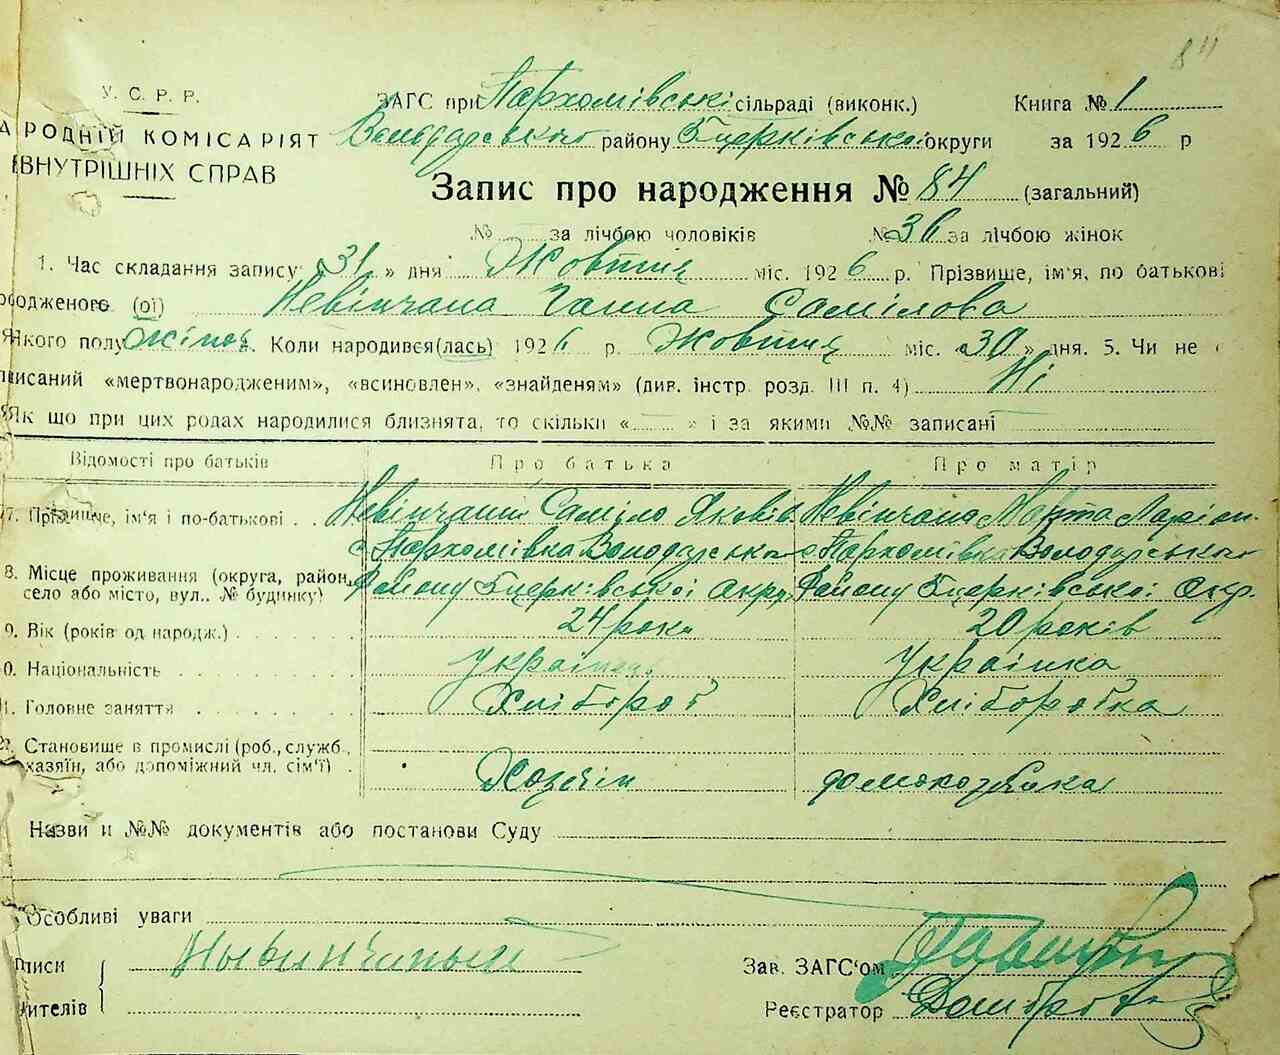 8"
У. С. Р. Р.
АРОДНІЙ КОМІСАРІЯТ
ВНУТРІШНІХ СПРАВ
ЗАГС при Пархомівські сільраді (виконк.) Книга № 1
Володарського району Бцерківської округи за 1926 р
Запис про народження № 84 (загальний)
№ за лічбою чоловіків № 36 за лічбою жінок
1. Час складання запису «31» дня Жовтня міс. 1926 р. Прізвище, ім'я, по батькові
родженого (ої) Невінчана Ганна Самілова
Якого полу жіноч. Коли народився(лась) 1926 р. Жовтня міс. «30» дня. 5. Чи не
писаний «мертвонародженим», «всиновлен», «знайденям» (див. інстр. розд. III п. 4) Ні
Як що при цих родах народилися близнята, то скільки « » і за якими №№ записані
Відомості про батьків Про батька Про матір
7. Прізвище, ім'я і по-батькові . . Невінчаний Саміло Яковів Невінчана Марта Ларіон.
с Пархомівка Володарсько с Пархомівка Володарського
8. Місце проживання (округа, район, село або місто, вул., № будинку) району Бцерківської Окру, Району Бцерківської Окр.
9. Вік (років од народж.) 24 роки 20 років
0. Національність Українець Українка
1. Головне заняття Хлібороб Хліборобка
2. Становище в промислі (роб., служб.,
хазяїн, або допоміжний чл. сім'ї) Хозяїн домохозяйка
Назви и №№ документів або постанови Суду
Особливі уваги
писи
Зав. ЗАГС'ом
ятелів
Реєстратор